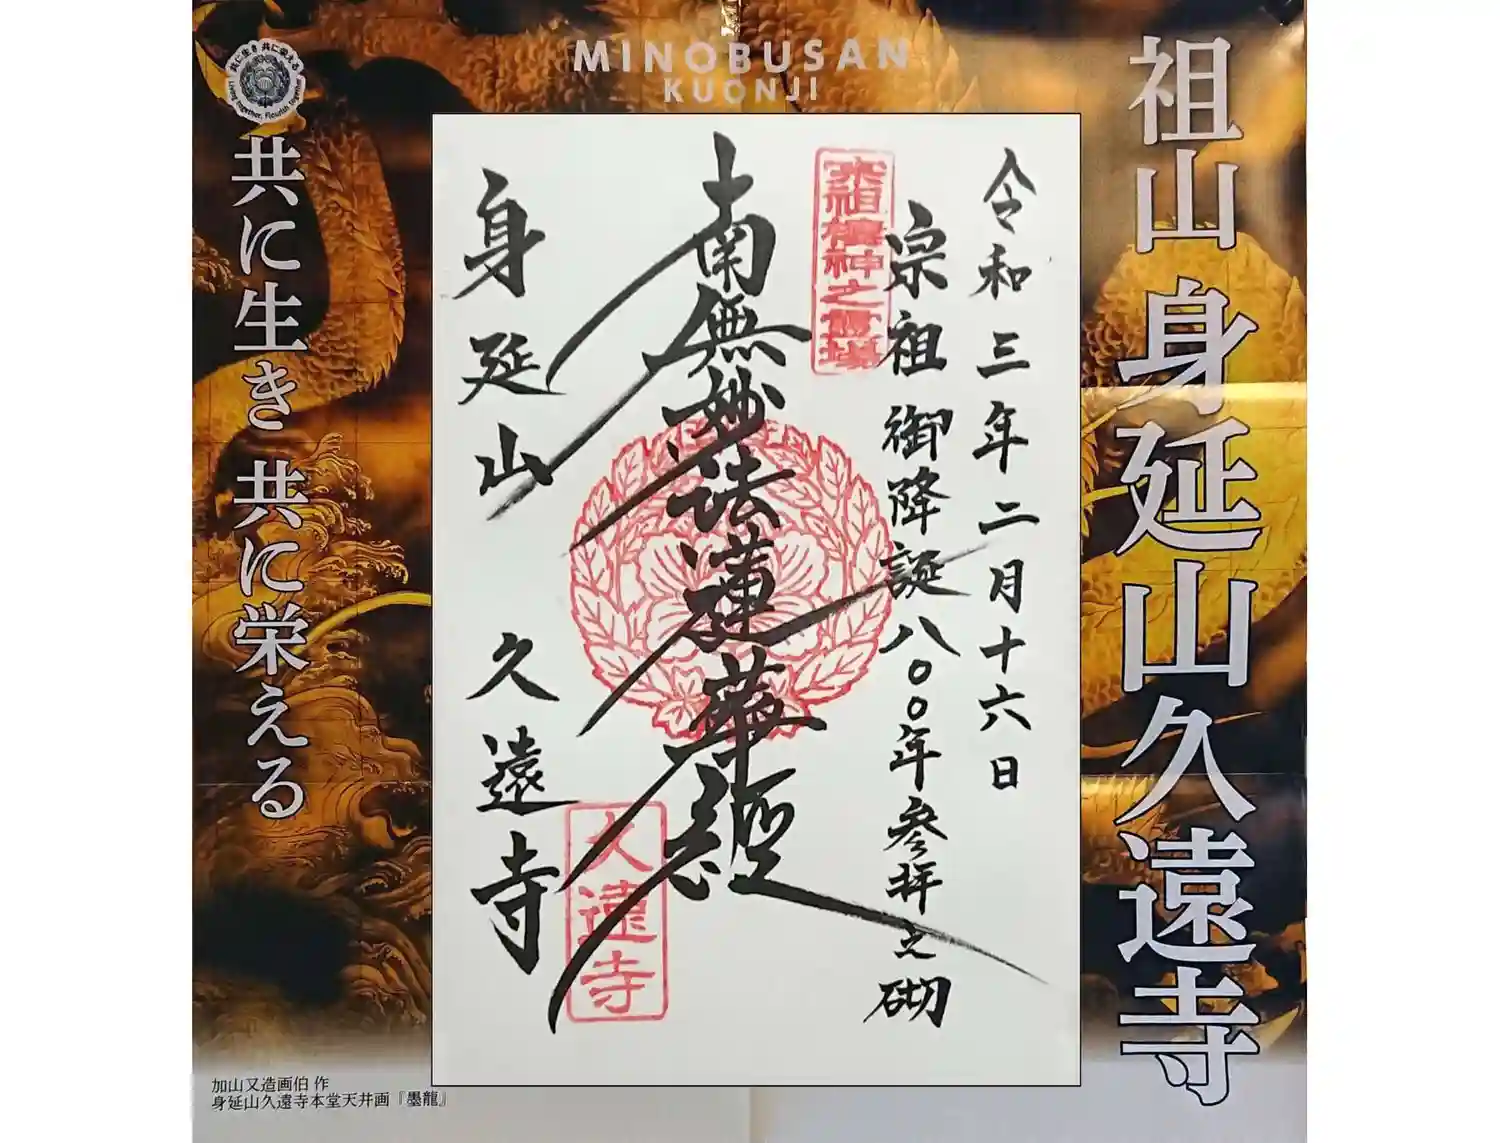 MINOBUSAN
KUONJI
祖山 身延山久遠寺
令和三年二月十六日
宗祖御降誕八〇〇年参拝之砌
宗祖棲神之霊場
南無妙法蓮華経
身延山 久遠寺
久遠寺
共に生き 共に栄える
共に生き 共に栄える
Living together, Flourish together
加山又造画伯 作
身延山久遠寺本堂天井画『墨龍』